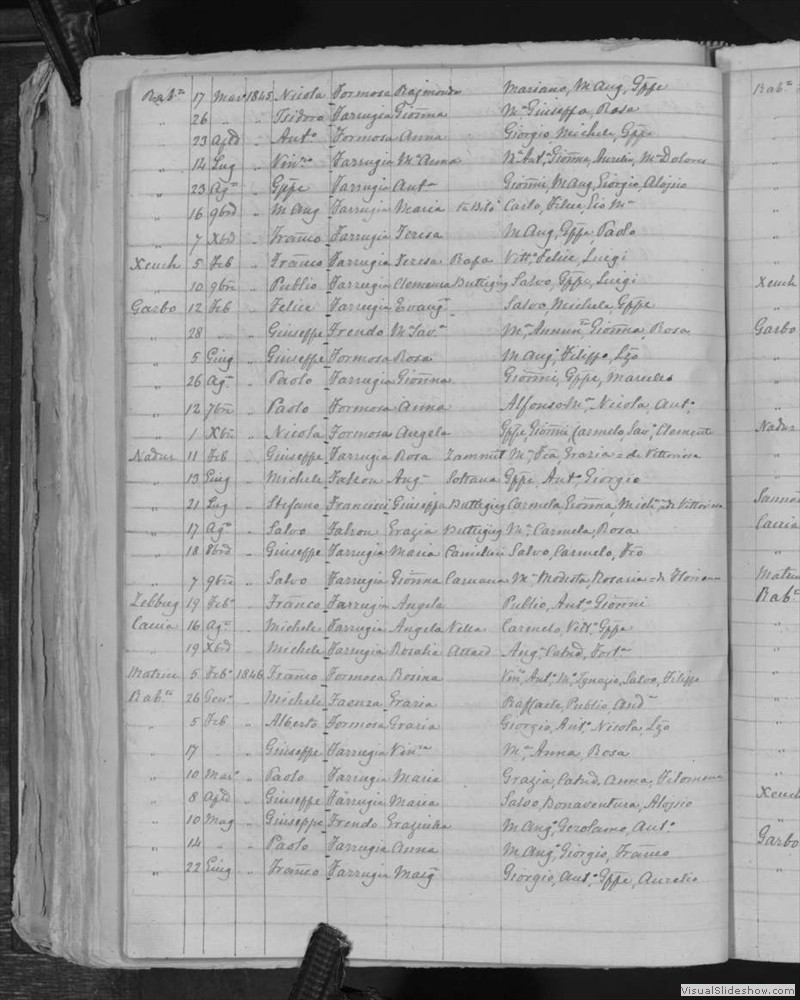 Rab.ᵃ 17 Mar 1845 Nicola Formosa Raimondo Mariano, M. Aug, Gȷȷe
„ 26 „ „ Isidoro Farrugia Giõnna Mᵃ Giuseppa, Rosa
„ 23 „ Antᵒ Formosa Anna Giorgio Michele, Gppe
„ 14 Lug „ Farrugia Mᵃ Anna Mᵃ Antᵃ Giõnna, Aurelio, Mᵃ Dolores
„ 23 Agᵒ „ Gppe Farrugia Antᵃ Giõnni, M Aug, Giorgio, Aloisio
„ 16 9bre „ M Aug Farrugia Maria Carlo, Felice,
„ 7 Xbre „ Franco Farrugia Teresa M Aug, Gppe, Paolo
Xeuch 5 Feb „ Franco Farrugia Teresa Rapa Vittᵃ Felice, Luigi
„ 10 9bre „ Publio Farrugia Clementa Buttigieg Salvo, Gppe, Luigi
Garbo 12 Feb „ Felice Farrugia Evangᵃ Salvo, Michele, Gppe
„ 28 „ „ Giuseppe Frendo Mᵃ Savᵃ Mᵃ Annunᵃ Giõnna, Rosa
„ 5 Giug „ Giuseppe Formosa Rosa M Angᵃ Filippo, Lzo
„ 26 Agᵒ „ Paolo Farrugia Giõnna Giõnni, Gppe, Marcello
„ 12 7bre „ Paolo Formosa Anna Alfonso Mᵃ, Nicola, Antᵒ
„ 1 Xbre „ Nicola Formosa Angela Gppe, Giõnni Carmelo, Savᵃ, Clemente
Nadur 11 Feb „ Giuseppe Farrugia Rosa Zammit Mᵃ Grazia = di Vittorina
„ 13 Giug „ Michele Falzon Angᵃ Soltana Gppe, Antᵒ Giorgio
„ 21 Lug „ Stefano Francini Giuseppa Buttigieg Carmela Giõnna, Michᵃ = di Vittorina
„ 17 Agᵒ „ Salvo Falzon Grazia Buttigieg Mᵃ Carmela, Rosa
„ 18 8bre „ Giuseppe Farrugia Maria Camilleri Salvo, Carmelo, Fro
„ 7 9bre „ Salvo Farrugia Giõnna Caruana Mᵃ Modesta, Rosaria = di Floriana
Zebbug 19 Febᵒ „ Franco Farrugia Angela Publio, Antᵒ Giõnni
Caccia 16 Agᵒ „ Michele Farrugia Angela Vella Carmelo, Vittᵒ Gppe
„ 19 Xbre „ Michele Farrugia Rosalia Attard Angᵒ Catnd, Fortᵃ
Matrice 5 Febᵒ 1846 Franco Formosa Rosina Vinᵒ, Antᵒ Mᵃ Ignazio, Salvo, Filippo
Rab.ᵃ 26 Genᵒ „ Michele Faenza Grazia Raffaele, Publio, Andᵃ
„ 5 Feb „ Alberto Formosa Grazia Giorgio, Antᵒ Nicola, Lzo
„ 17 „ „ Giuseppe Farrugia Vinᵃ Mᵃ Anna, Rosa
„ 10 Marᵒ „ Paolo Farrugia Maria Grazia, Catnd, Anna, Filomena
„ 8 „ Giuseppe Farrugia Maria Salvo, Bonaventura, Aloisio
„ 10 Mag „ Giuseppe Frendo Grazinha M Angᵒ Gerolamo, Antᵒ
„ 14 „ „ Paolo Farrugia Anna M Angᵒ Giorgio, Franco
„ 22 Giug „ Franco Farrugia Giorgio, Antᵒ Gppe, Aurelio
Rabᵃ
Xeuch
Garbo
Nadur
Caccia
Rab.ᵃ
Xeuch
Garbo
VisualSlideshow.com